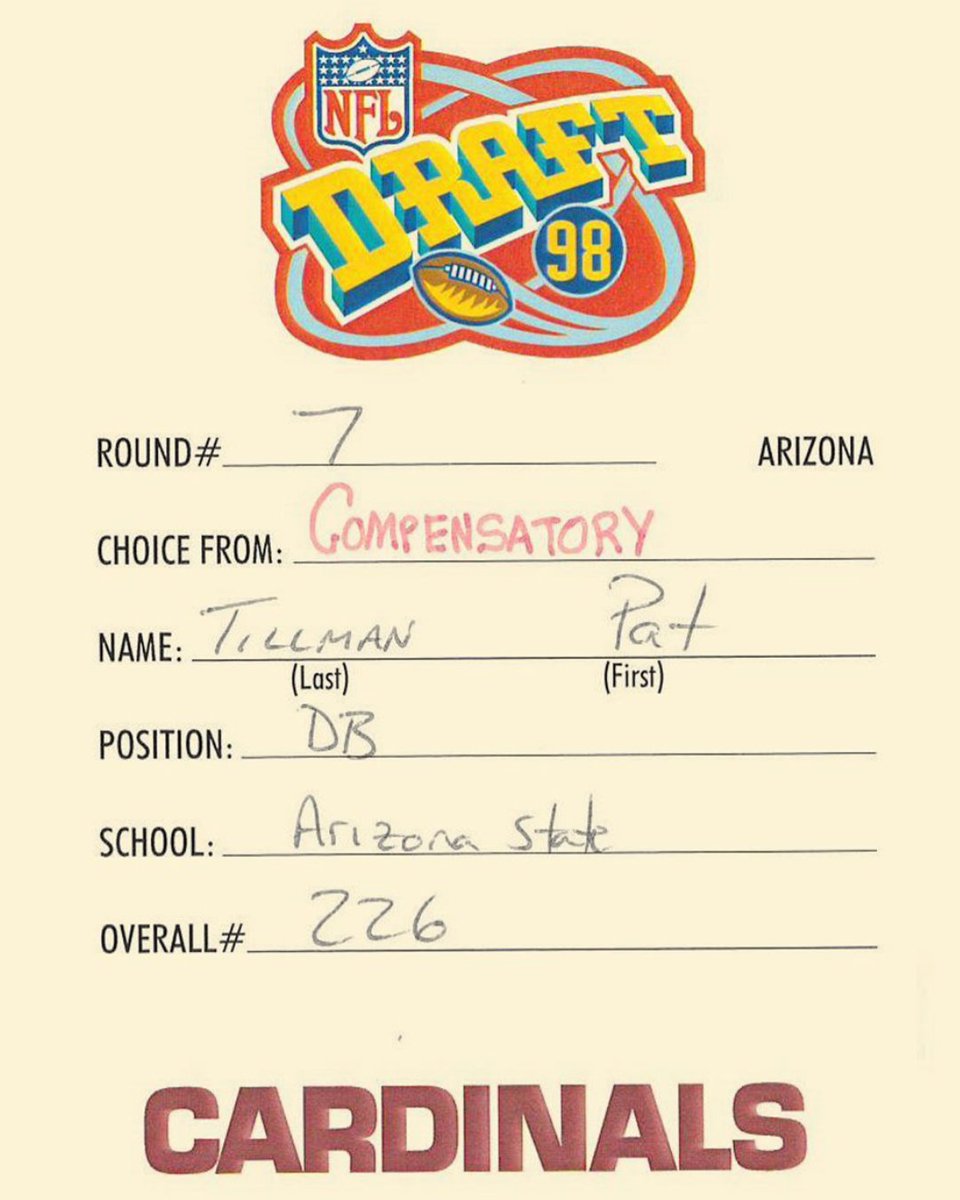 NFL
DRAFT
98
ROUND# 7 ARIZONA
CHOICE FROM: COMPENSATORY
NAME: TILLMAN Pat
(Last) (First)
POSITION: DB
SCHOOL: Arizona State
OVERALL# 226
CARDINALS